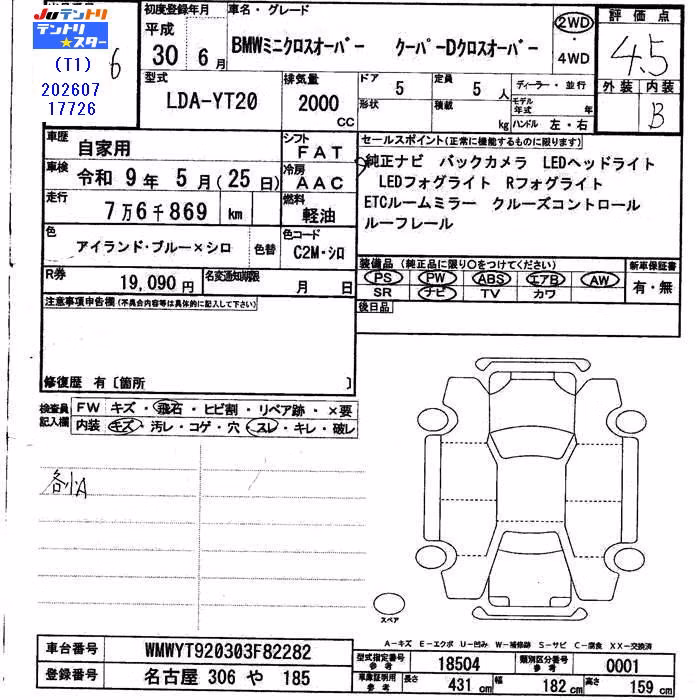 Juテントリ
テントリ
★スター
(T1)
202607
17726
6
初度登録年月
平成
30年 6月
車名・グレード
BMWミニクロスオーバー クーパーDクロスオーバー
2WD
・
4WD
評価点
4.5
外装 内装
B
型式
LDA-YT20
排気量
2000
CC
ドア 5
形状
定員 5 人
積載 kg
ディーラー・並行
モデル年式 年
ハンドル 左・右
車歴 自家用
シフト FAT
車検 令和 9年 5月(25日)
冷房 AAC
走行 7万6千869 km
燃料 軽油
色 アイランド・ブルー×シロ 色替
色コード C2M・シロ
R券 19,090円
名変通知期限 月 日
セールスポイント(正常に機能するものに限ります)
純正ナビ バックカメラ LEDヘッドライト
LEDフォグライト Rフォグライト
ETCルームミラー クルーズコントロール
ルーフレール
装備品(純正品に限り○をつけてください)
PS PW ABS エアB AW
SR ナビ TV カワ
新車保証書
有・無
後日品
注意事項申告欄(不具合内容等は具体的に記入して下さい)
修復歴 有〔箇所 〕
検査員
記入欄
FW キズ・飛石・ヒビ割・リペア跡・×要
内装 キズ・汚レ・コゲ・穴・スレ・キレ・破レ
各小A
スペア
A-キズ E-エクボ U-凹み W-補修跡 S-サビ C-腐食 XX-交換済
車台番号 WMWYT920303F82282
登録番号 名古屋 306 や 185
型式指定番号 参考 18504
類別区分番号 参考 0001
車庫証明用 参考 長さ 431 cm 幅 182 cm 高さ 159 cm